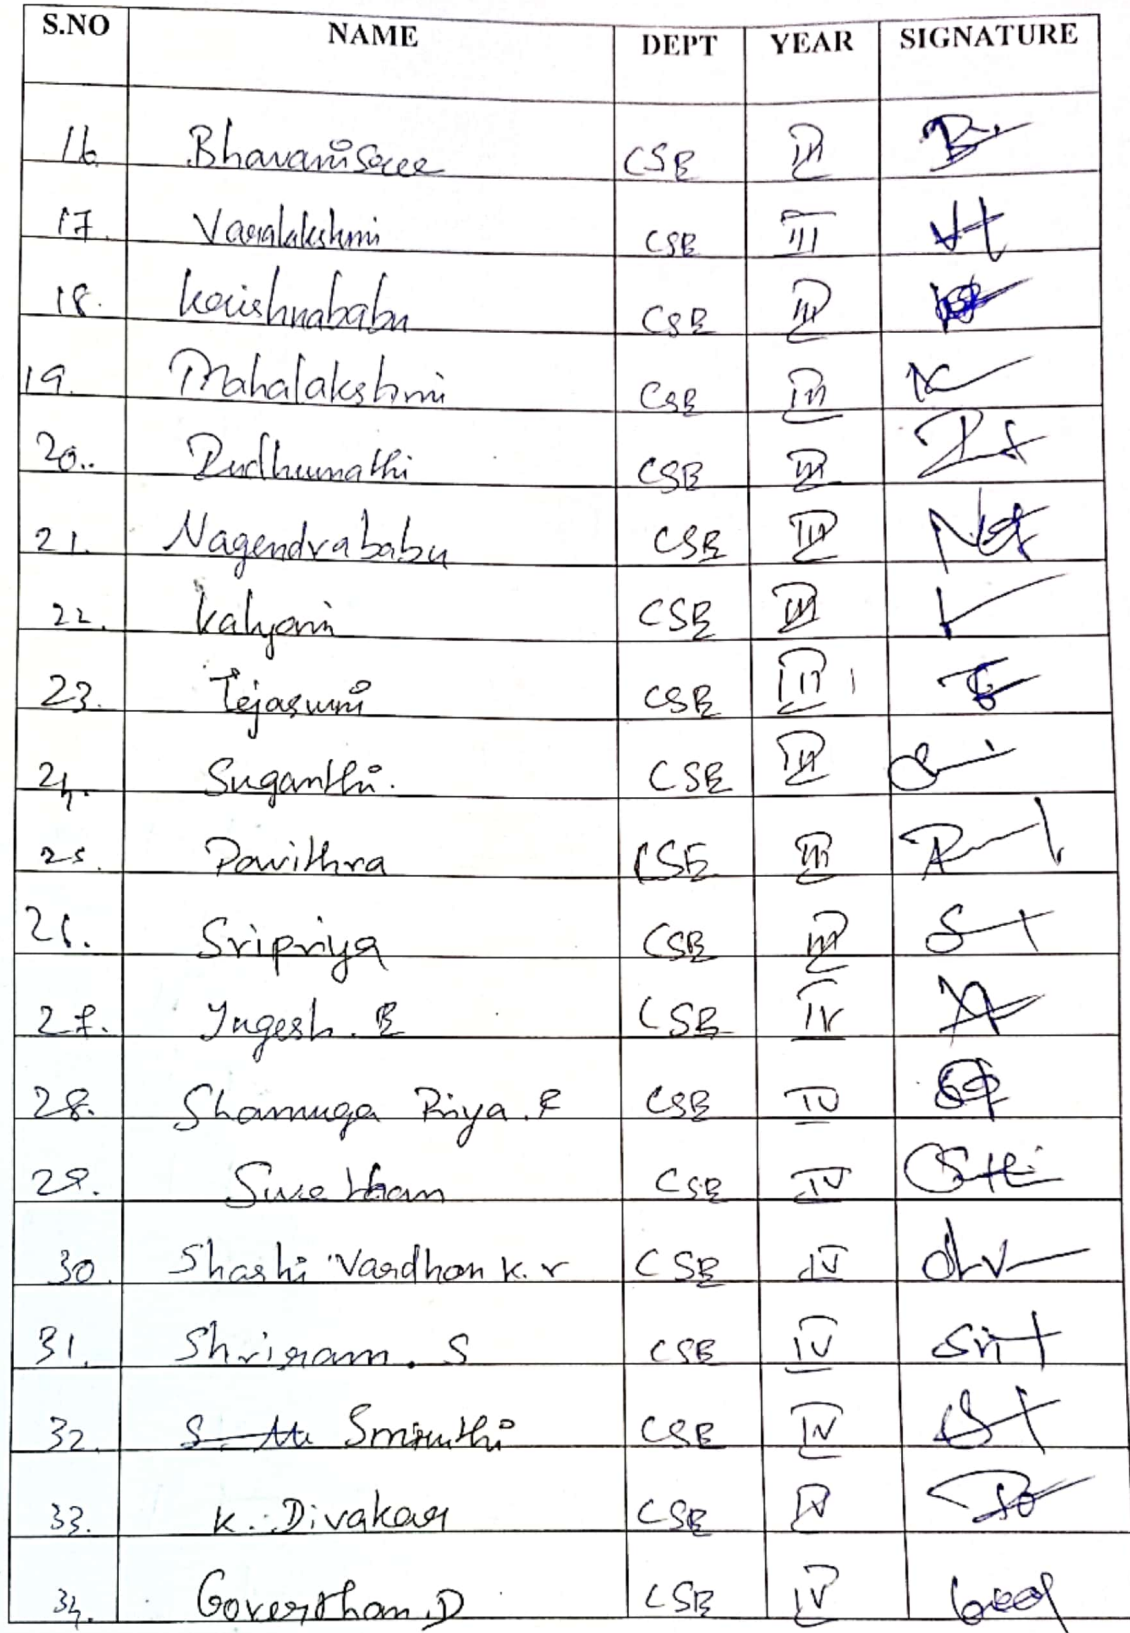 S.NO NAME DEPT YEAR SIGNATURE
16. Bhavanisree CSE III
17. Varalakshmi CSE III
18. Krishnababu CSE III
19. Mahalakshmi CSE III
20. CSE III
21. Nagendrababu CSE III
22. Kalyani CSE III
23. Tejaswini CSE III
24. Suganthi. CSE III
25. Pavithra CSE III
26. Sripriya CSE III
27. Yugesh. E CSE IV
28. Shanmuga Priya. CSE IV
29. CSE IV
30. Shashi Vardhan K.V CSE IV
31. Shriram. S CSE IV
32. Smruthi CSE IV
33. K. Divakar CSE IV
34. Goverthan.D CSE IV